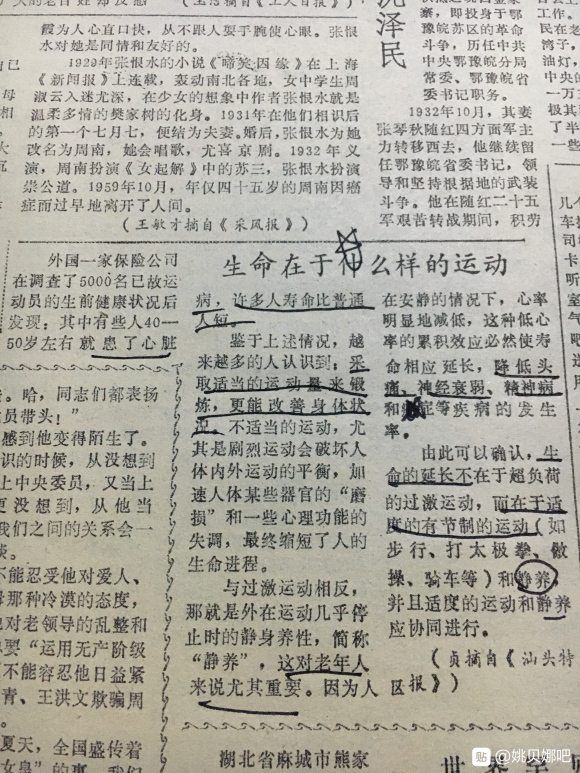 霞为人心直口快，从不跟人耍手腕使心眼。张恨
水对她是同情和友好的。
1929年张恨水的小说《啼笑因缘》在上海
《新闻报》上连载，轰动南北各地，女中学生周
淑云入迷尤深，在少女的想象中作者张恨水就是
温柔多情的樊家树的化身。1931年在他们相识后
的第一个七月七，便结为夫妻。婚后，张恨水为她
改名为周南，她会唱歌，尤喜京剧。1932年义
演，周南扮演《女起解》中的苏三，张恨水扮演
崇公道。1959年10月，年仅四十五岁的周南因癌
症而过早地离开了人间。
（王敏才摘自《采风报》）
沈泽民
寨，即投身于鄂
豫皖苏区的革命
斗争，历任中共
中央鄂豫皖分局
常委、鄂豫皖省
委书记职务。
1932年10月，其妻
张琴秋随红四方面军主
力转移西去，他继续留
任鄂豫皖省委书记，领
导和坚持根据地的武装
斗争。他在随红二十五
军艰苦转战期间，积劳
生命在于什么样的运动
外国一家保险公司
在调查了5000名已故运
动员的生前健康状况后
发现：其中有些人40—
50岁左右就患了心脏
病，许多人寿命比普通
人短。
鉴于上述情况，越
来越多的人认识到：采
取适当的运动量来锻
炼，更能改善身体状
况。不适当的运动，尤
其是剧烈运动会破坏人
体内外运动的平衡，加
速人体某些器官的“磨
损”和一些心理功能的
失调，最终缩短了人的
生命进程。
与过激运动相反，
那就是外在运动几乎停
止时的静身养性，简称
“静养”，这对老年人
来说尤其重要。因为人
在安静的情况下，心率
明显地减低，这种低心
率的累积效应必然使寿
命相应延长，降低头
痛、神经衰弱、精神病
和症等疾病的发生
率。
由此可以确认，生
命的延长不在于超负荷
的过激运动，而在于适
度的有节制的运动（如
步行、打太极拳、做
操、骑车等）和静养，
并且适度的运动和静养
应协同进行。
（贞摘自《汕头特
区报》）
哈，同志们都表扬
员带头！”
感到他变得陌生了。
识的时候，从没想到
上中央委员，又当上
更没想到，从他当
我们之间的关系会一
不能忍受他对爱人、
母那种冷漠的态度，
他对老领导的乱整和
要“运用无产阶级
不能容忍他日益紧
青、王洪文欺骗周
夏天，全国盛传着
湖北省麻城市熊家
贴 @姚贝娜吧